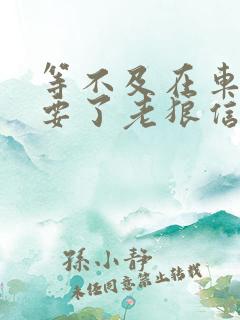 等不及在車
要了老狼信
孫小静
未经同意禁止转载